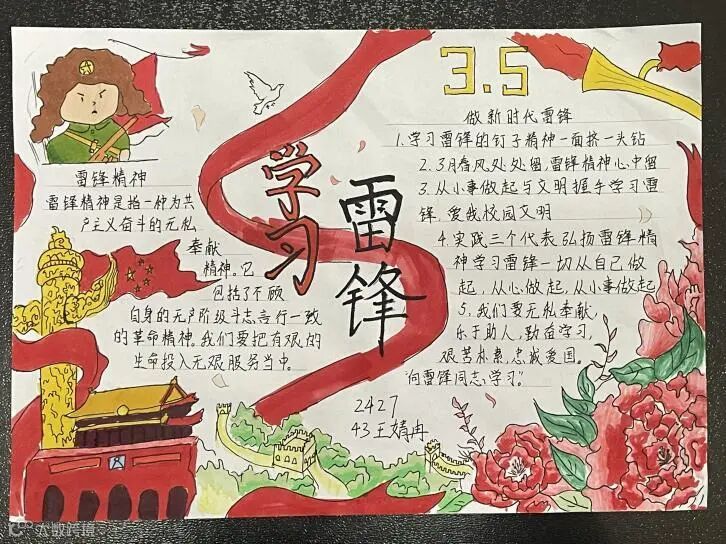 3.5
学习
雷锋
雷锋精神
雷锋精神是指一种为共
产主义奋斗的无私
奉献
精神。它
包括了不顾
自身的无产阶级斗志言行一致
的革命精神。我们要把有艰的
生命投入无艰服务当中。
做新时代雷锋
1.学习雷锋的钉子精神一面挤一头钻
2.3月春风处处留,雷锋精神心中留
3.从小事做起与文明握手学习雷
锋,爱我校园文明
4.实践三个代表弘扬雷锋精
神学习雷锋一切从自己做
起,从心做起,从小事做起
5.我们要无私奉献,
乐于助人,勤奋学习,
艰苦朴素,忠诚爱国。
"向雷锋同志学习"
2427
43王婧冉
大数跨境